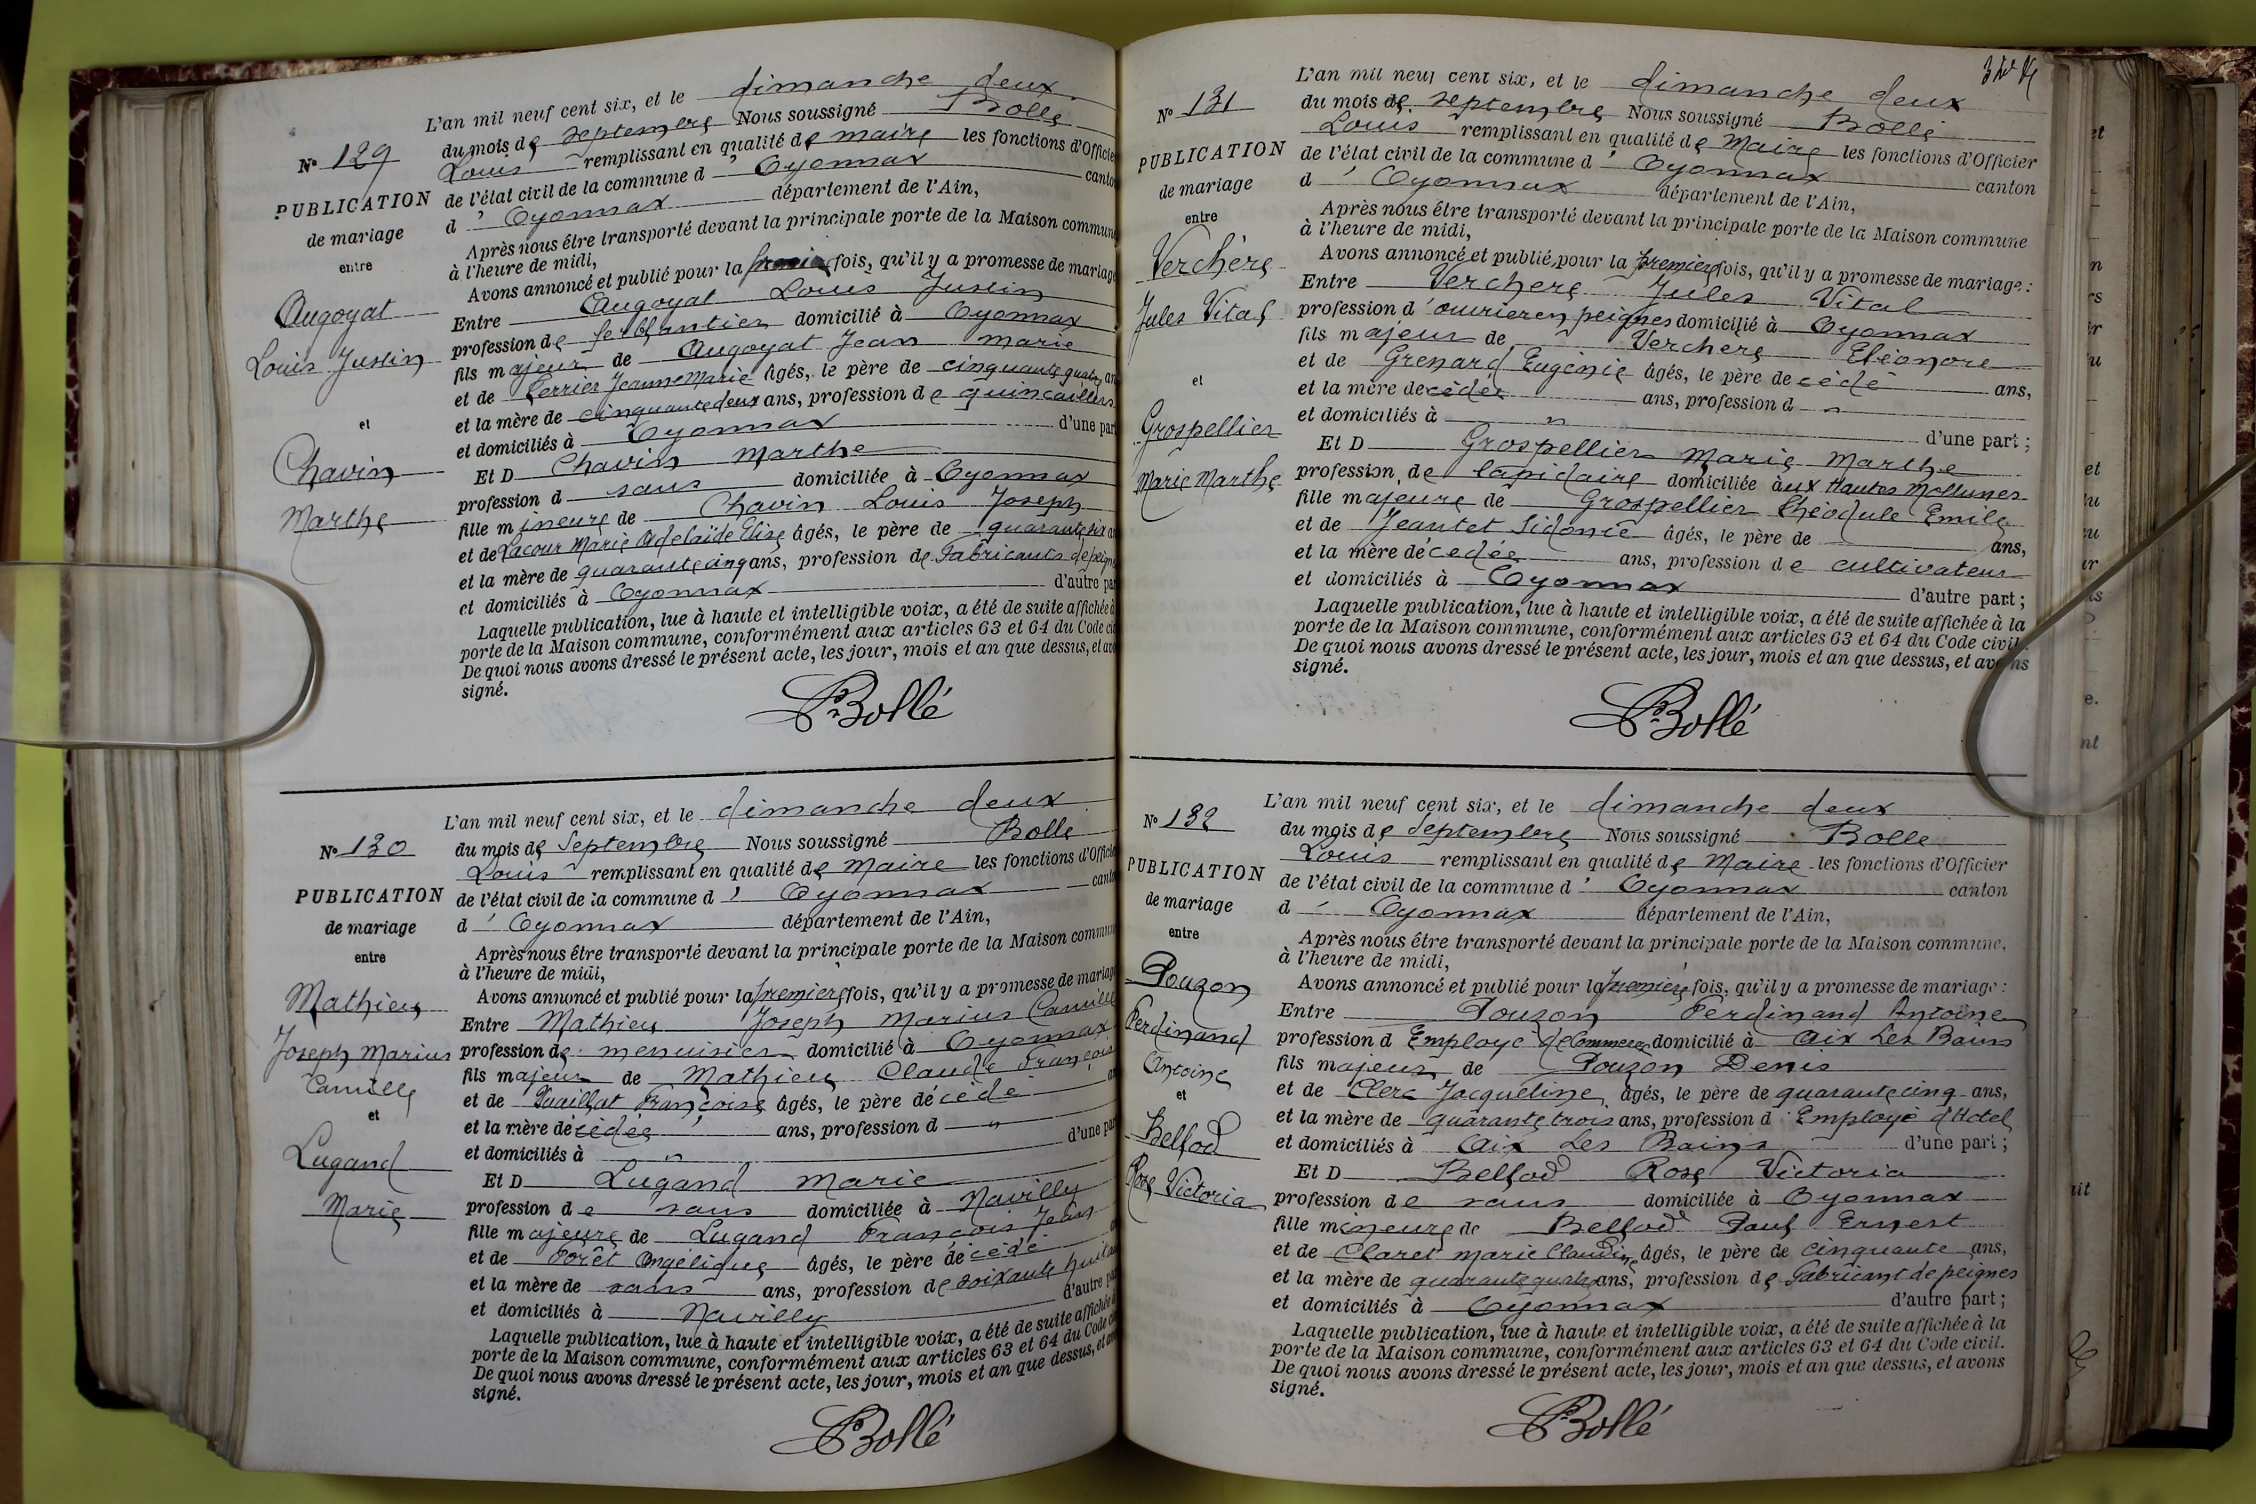 N° 129
PUBLICATION
de mariage
entre
Augoyat
Louis Justin
et
Chavin
Marthe
L'an mil neuf cent six, et le dimanche deux
du mois de septembre Nous soussigné Bollé
Louis remplissant en qualité de maire les fonctions d'Officier
de l'état civil de la commune d' Oyonnax canton
d' Oyonnax département de l'Ain,
Après nous être transporté devant la principale porte de la Maison commune
à l'heure de midi,
Avons annoncé et publié pour la fois, qu'il y a promesse de mariage
Entre Augoyat Louis Justin
profession de ferblantier domicilié à Oyonnax
fils majeur de Augoyat Jean Marie
et de Jeanne Marie âgés, le père de cinquante quatre an
et la mère de cinquante deux ans, profession de quincaillers
et domiciliés à Oyonnax d'une part
Et D Chavin Marthe
profession d sans domiciliée à Oyonnax
fille mineure de Chavin Louis Joseph
et de Lacour Marie Adelaïde Elise âgés, le père de quarante six an
et la mère de quarante cinq ans, profession de Fabricants de peignes
et domiciliés à Oyonnax d'autre par
Laquelle publication, lue à haute et intelligible voix, a été de suite affichée à
porte de la Maison commune, conformément aux articles 63 et 64 du Code ci
De quoi nous avons dressé le présent acte, les jour, mois et an que dessus, et avo
signé.
Bollé
N° 130
PUBLICATION
de mariage
entre
Mathieu
Joseph Marius
Camille
et
Lugand
Marie
L'an mil neuf cent six, et le dimanche deux
du mois de Septembre Nous soussigné Bollé
Louis remplissant en qualité de Maire les fonctions d'Officie
de l'état civil de la commune d' Oyonnax canto
d' Oyonnax département de l'Ain,
Après nous être transporté devant la principale porte de la Maison commun
à l'heure de midi,
Avons annoncé et publié pour la première fois, qu'il y a promesse de mariage
Entre Mathieu Joseph Marius Camille
profession de menuisier domicilié à Oyonnax
fils majeur de Mathieu Claude François
et de Françoise âgés, le père décédé an
et la mère décédée ans, profession d "
et domiciliés à " d'une par
Et D Lugand Marie
profession de sans domiciliée à Navilly
fille majeure de Lugand François Jean
et de Forêt Angélique âgés, le père décédé a
et la mère de sans ans, profession de soixante huit an
et domiciliés à Navilly d'autre pa
Laquelle publication, lue à haute et intelligible voix, a été de suite affichée à
porte de la Maison commune, conformément aux articles 63 et 64 du Code ci
De quoi nous avons dressé le présent acte, les jour, mois et an que dessus, et av
signé.
Bollé
N° 131
PUBLICATION
de mariage
entre
Verchère
Jules Vital
et
Grospellier
Marie Marthe
L'an mil neuf cent six, et le dimanche deux
du mois de septembre Nous soussigné Bollé
Louis remplissant en qualité de Maire les fonctions d'Officier
de l'état civil de la commune d' Oyonnax canton
d' Oyonnax département de l'Ain,
Après nous être transporté devant la principale porte de la Maison commune
à l'heure de midi,
Avons annoncé et publié pour la première fois, qu'il y a promesse de mariage :
Entre Verchère Jules Vital
profession d'ouvrier en peignes domicilié à Oyonnax
fils majeur de Verchere Eléonore
et de Grenard Eugénie âgés, le père de cédé ans,
et la mère decédée ans, profession d "
et domiciliés à " d'une part ;
Et D Grospellier Marie Marthe
profession de lapidaire domiciliée aux Hautes Mollunes
fille majeure de Grospellier Théodule Emile
et de Jeantet Sidonie âgés, le père de ans,
et la mère décédée ans, profession de cultivateur
et domiciliés à Oyonnax d'autre part ;
Laquelle publication, lue à haute et intelligible voix, a été de suite affichée à la
porte de la Maison commune, conformément aux articles 63 et 64 du Code civil.
De quoi nous avons dressé le présent acte, les jour, mois et an que dessus, et avons
signé.
Bollé
N° 132
PUBLICATION
de mariage
entre
Pouzon
Ferdinand
Antoine
et
Belfod
Rose Victoria
L'an mil neuf cent six, et le dimanche deux
du mois de Septembre Nous soussigné Bollé
Louis remplissant en qualité de Maire les fonctions d'Officier
de l'état civil de la commune d' Oyonnax canton
d' Oyonnax département de l'Ain,
Après nous être transporté devant la principale porte de la Maison commune,
à l'heure de midi,
Avons annoncé et publié pour la première fois, qu'il y a promesse de mariage :
Entre Pouzon Ferdinand Antoine
profession d Employé de Commerce domicilié à Aix Les Bains
fils majeur de Pouzon Denis
et de Clerc Jacqueline âgés, le père de quarante cinq ans,
et la mère de quarante trois ans, profession d' Employé d'Hotel
et domiciliés à Aix Les Bains d'une part ;
Et D Belfod Rose Victoria
profession de sans domiciliée à Oyonnax
fille mineure de Belfod Paul Ernest
et de Claret Marie Claudine âgés, le père de cinquante ans,
et la mère de quarante quatre ans, profession de Fabricant de peignes
et domiciliés à Oyonnax d'autre part ;
Laquelle publication, lue à haute et intelligible voix, a été de suite affichée à la
porte de la Maison commune, conformément aux articles 63 et 64 du Code civil.
De quoi nous avons dressé le présent acte, les jour, mois et an que dessus, et avons
signé.
Bollé